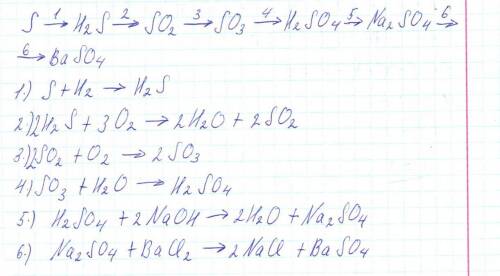 S 1→ H₂S 2→ SO₂ 3→ SO₃ 4→ H₂SO₄ 5→ Na₂SO₄ 6→
6→ BaSO₄
1.) S + H₂ → H₂S
2.) 2H₂S + 3O₂ → 2H₂O + 2SO₂
3.) 2SO₂ + O₂ → 2SO₃
4) SO₃ + H₂O → H₂SO₄
5.) H₂SO₄ + 2NaOH → 2H₂O + Na₂SO₄
6.) Na₂SO₄ + BaCl₂ → 2NaCl + BaSO₄